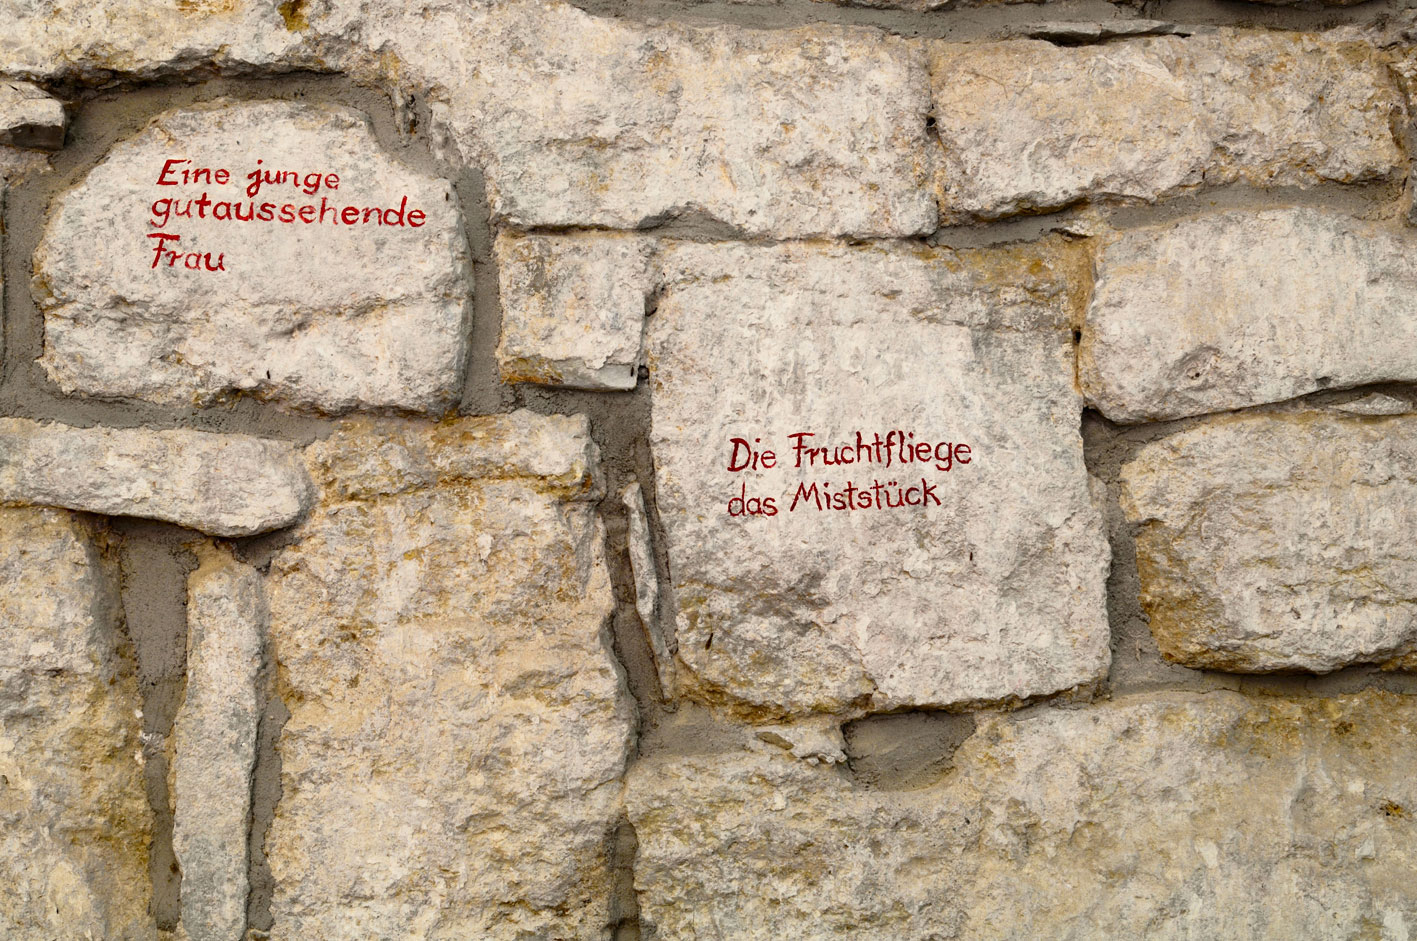 Eine junge
gutaussehende
Frau
Die Fruchtfliege
das Miststück